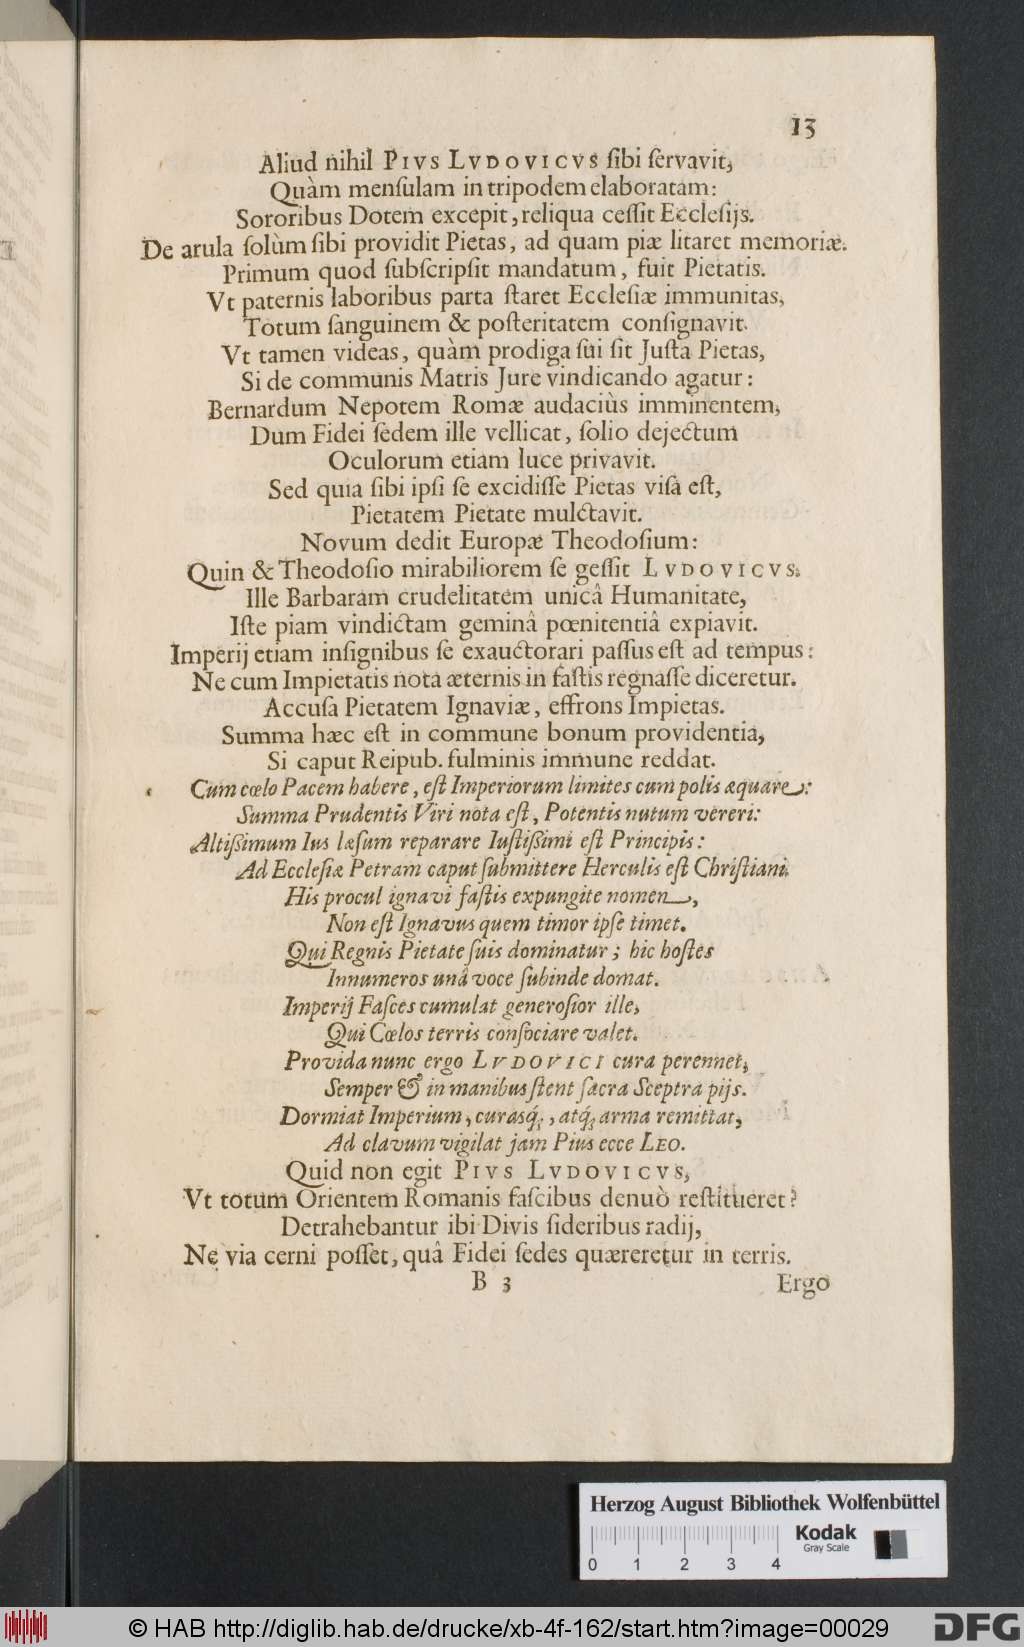 13
Aliud nihil PIVS LVDOVICVS sibi servavit,
Quàm mensulam in tripodem elaboratam:
Sororibus Dotem excepit, reliqua cessit Ecclesijs.
De arula solùm sibi providit Pietas, ad quam piæ litaret memoriæ.
Primum quod subscripsit mandatum, fuit Pietatis.
Vt paternis laboribus parta staret Ecclesiæ immunitas,
Totum sanguinem & posteritatem consignavit.
Vt tamen videas, quàm prodiga sui sit Justa Pietas,
Si de communis Matris Jure vindicando agatur:
Bernardum Nepotem Romæ audaciùs imminentem,
Dum Fidei sedem ille vellicat, solio dejectum
Oculorum etiam luce privavit.
Sed quia sibi ipsi se excidisse Pietas visa est,
Pietatem Pietate mulctavit.
Novum dedit Europæ Theodosium:
Quin & Theodosio mirabiliorem se gessit LVDOVICVS.
Ille Barbaram crudelitatem unicâ Humanitate,
Iste piam vindictam geminâ pœnitentiâ expiavit.
Imperij etiam insignibus se exauctorari passus est ad tempus:
Ne cum Impietatis nota æternis in fastis regnasse diceretur.
Accusa Pietatem Ignaviæ, effrons Impietas.
Summa hæc est in commune bonum providentia,
Si caput Reipub. fulminis immune reddat.
Cum cœlo Pacem habere, est Imperiorum limites cum polis æquare:
Summa Prudentis Viri nota est, Potentis nutum vereri:
Altissimum Ius læsum reparare Iustissimi est Principis:
Ad Ecclesiæ Petram caput submittere Herculis est Christiani.
His procul ignavi fastis expungite nomen,
Non est Ignavus quem timor ipse timet.
Qui Regnis Pietate suis dominatur; hic hostes
Innumeros unâ voce subinde domat.
Imperij Fasces cumulat generosior ille,
Qui Cœlos terris consociare valet.
Provida nunc ergo LVDOVICI cura perennet,
Semper & in manibus stent sacra Sceptra pijs.
Dormiat Imperium, curasq́;, atq́; arma remittat,
Ad clavum vigilat jam Pius ecce LEO.
Quid non egit PIVS LVDOVICVS,
Vt totum Orientem Romanis fascibus denuò restitueret?
Detrahebantur ibi Divis sideribus radij,
Ne via cerni posset, quâ Fidei sedes quæreretur in terris.
B 3 Ergo
Herzog August Bibliothek Wolfenbüttel
Kodak
Gray Scale
0 1 2 3 4
© HAB http://diglib.hab.de/drucke/xb-4f-162/start.htm?image=00029
DFG